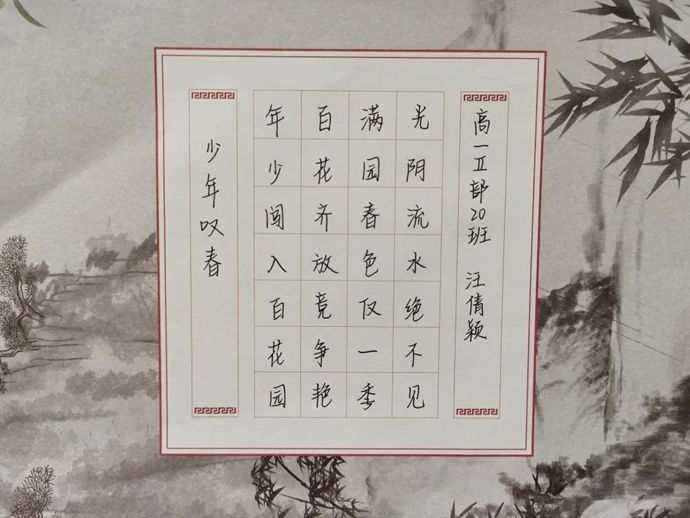 少年叹春
年少闯入百花园
百花齐放竞争艳
满园春色仅一季
光阴流水绝不见
高一Ⅱ部20班 汪倩颖